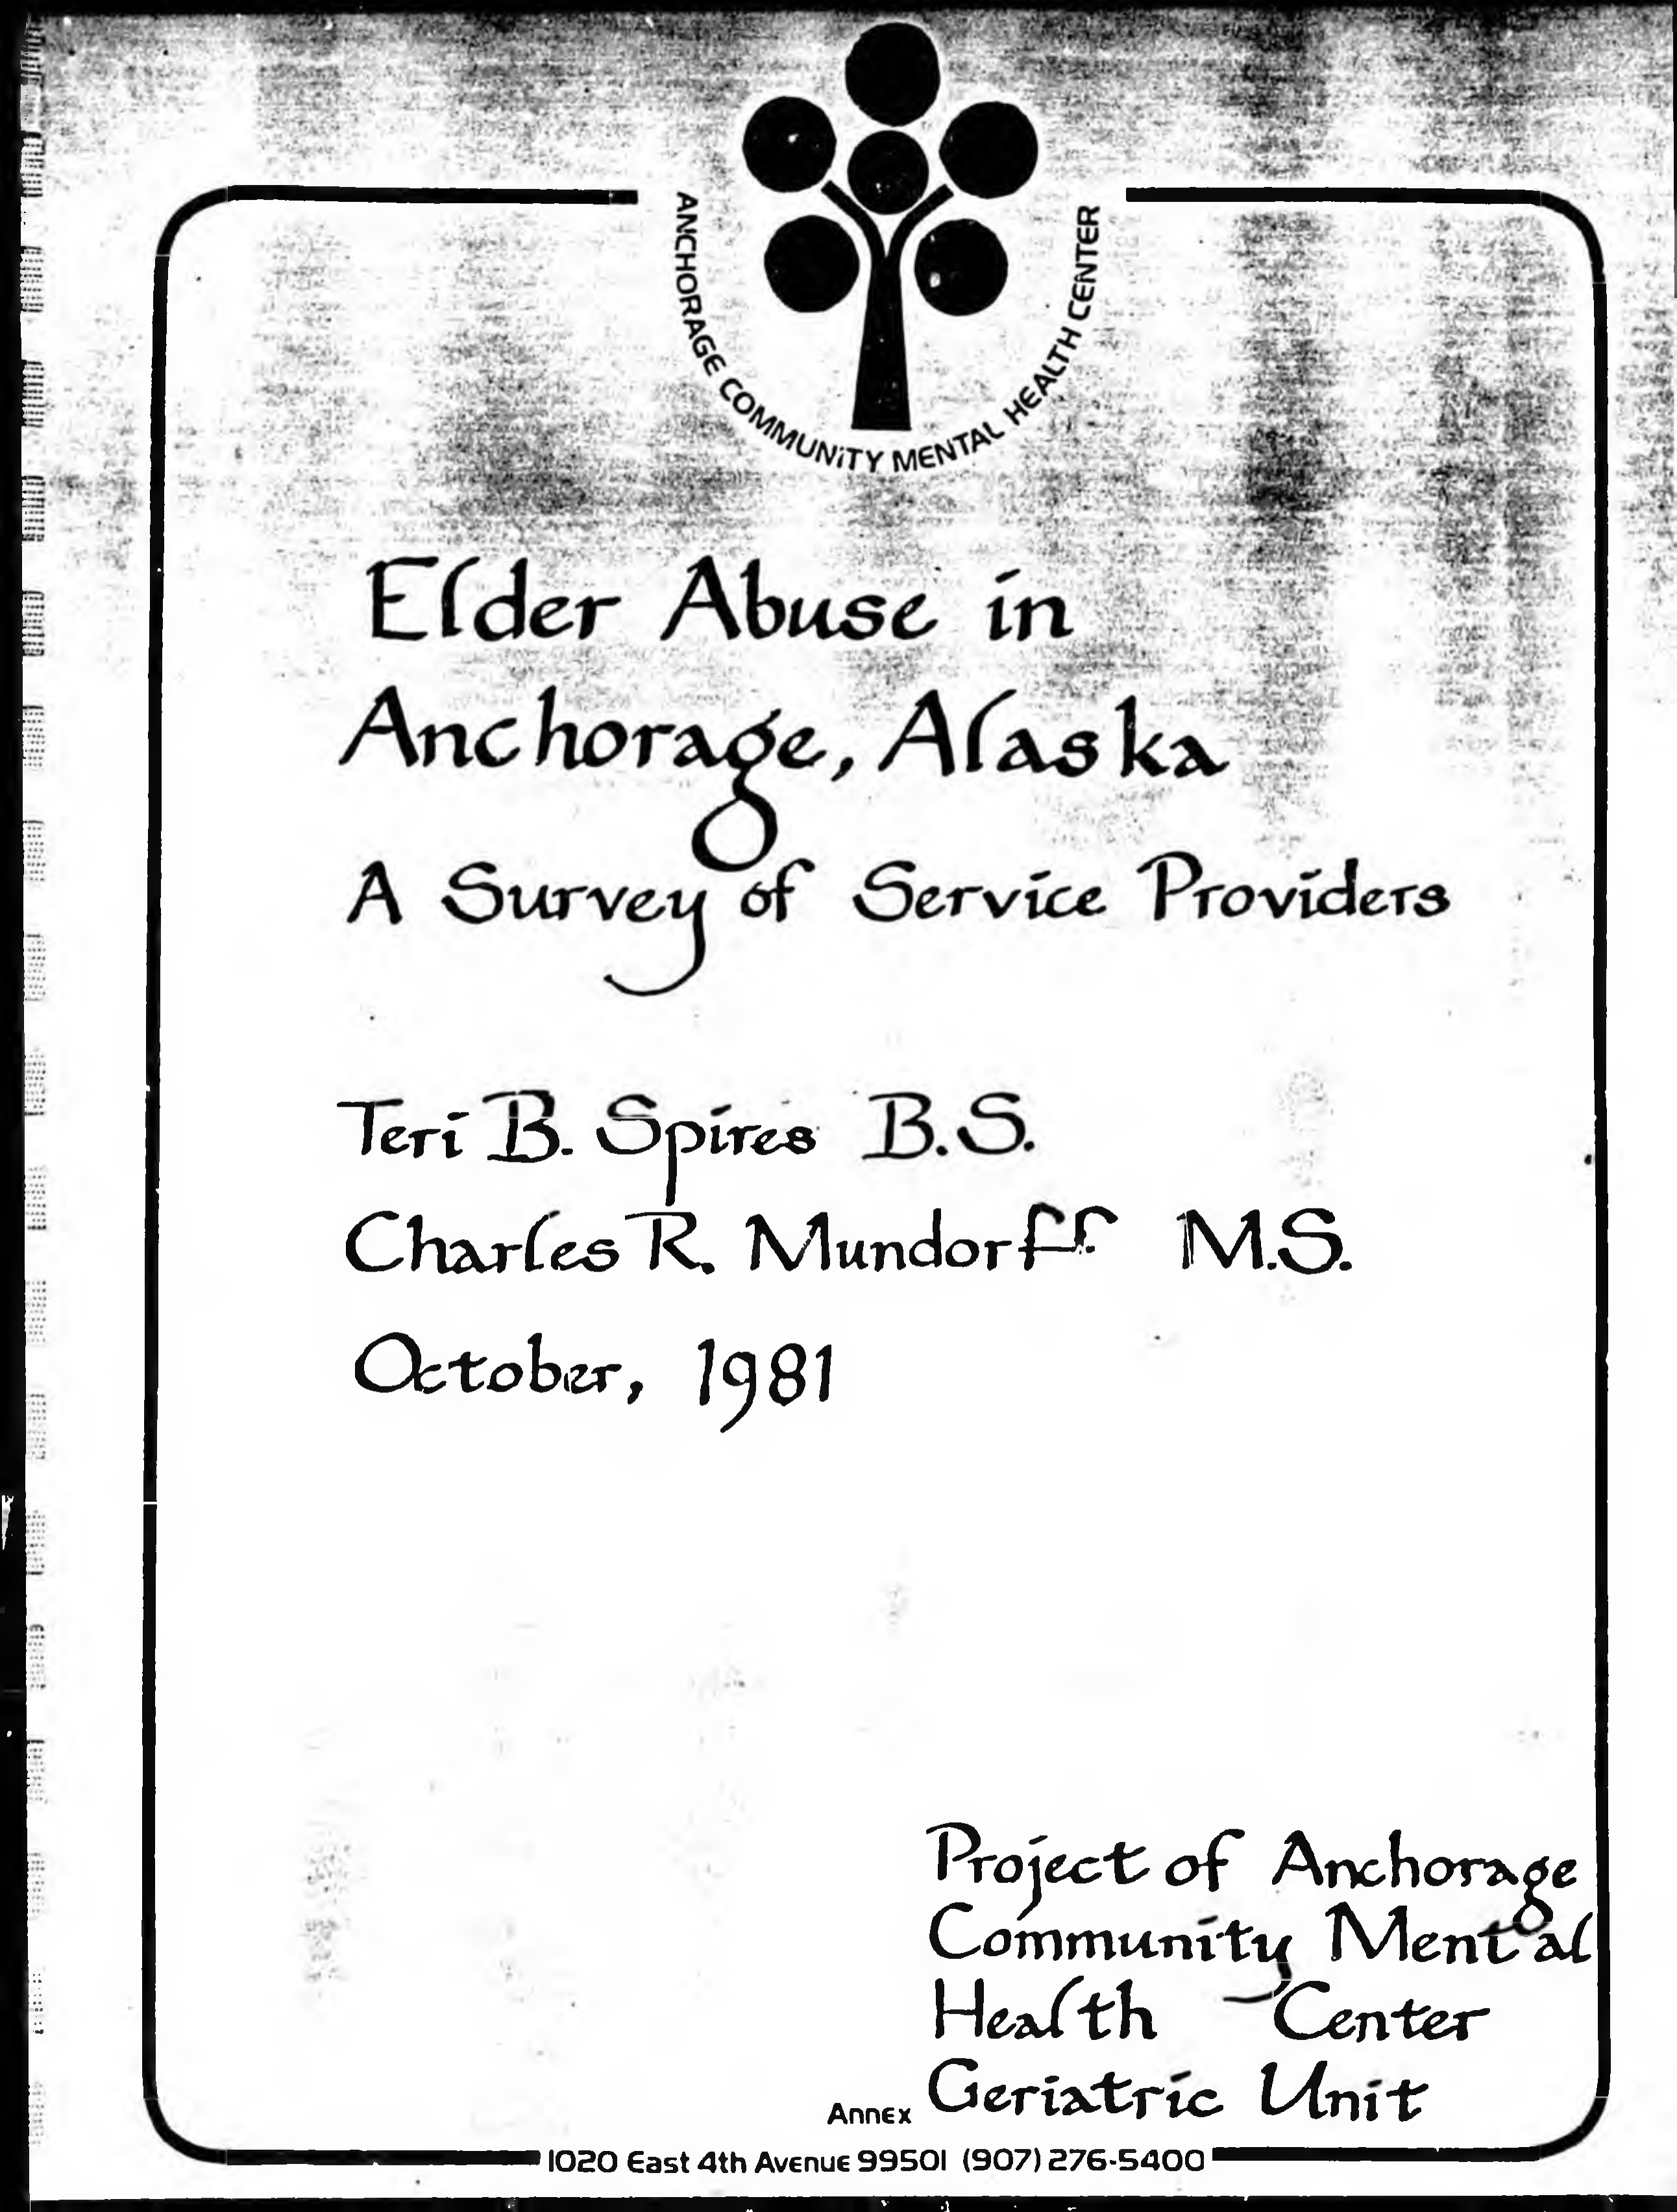 ANCHORAGE COMMUNITY MENTAL HEALTH CENTER
Elder Abuse in
Anchorage, Alaska
A Survey of Service Providers
Teri B. Spires B.S.
Charles R. Mundorff M.S.
October, 1981
Project of Anchorage
Community Mental
Health Center
Geriatric Unit
Annex
1020 East 4th Avenue 99501 (907) 276-5400